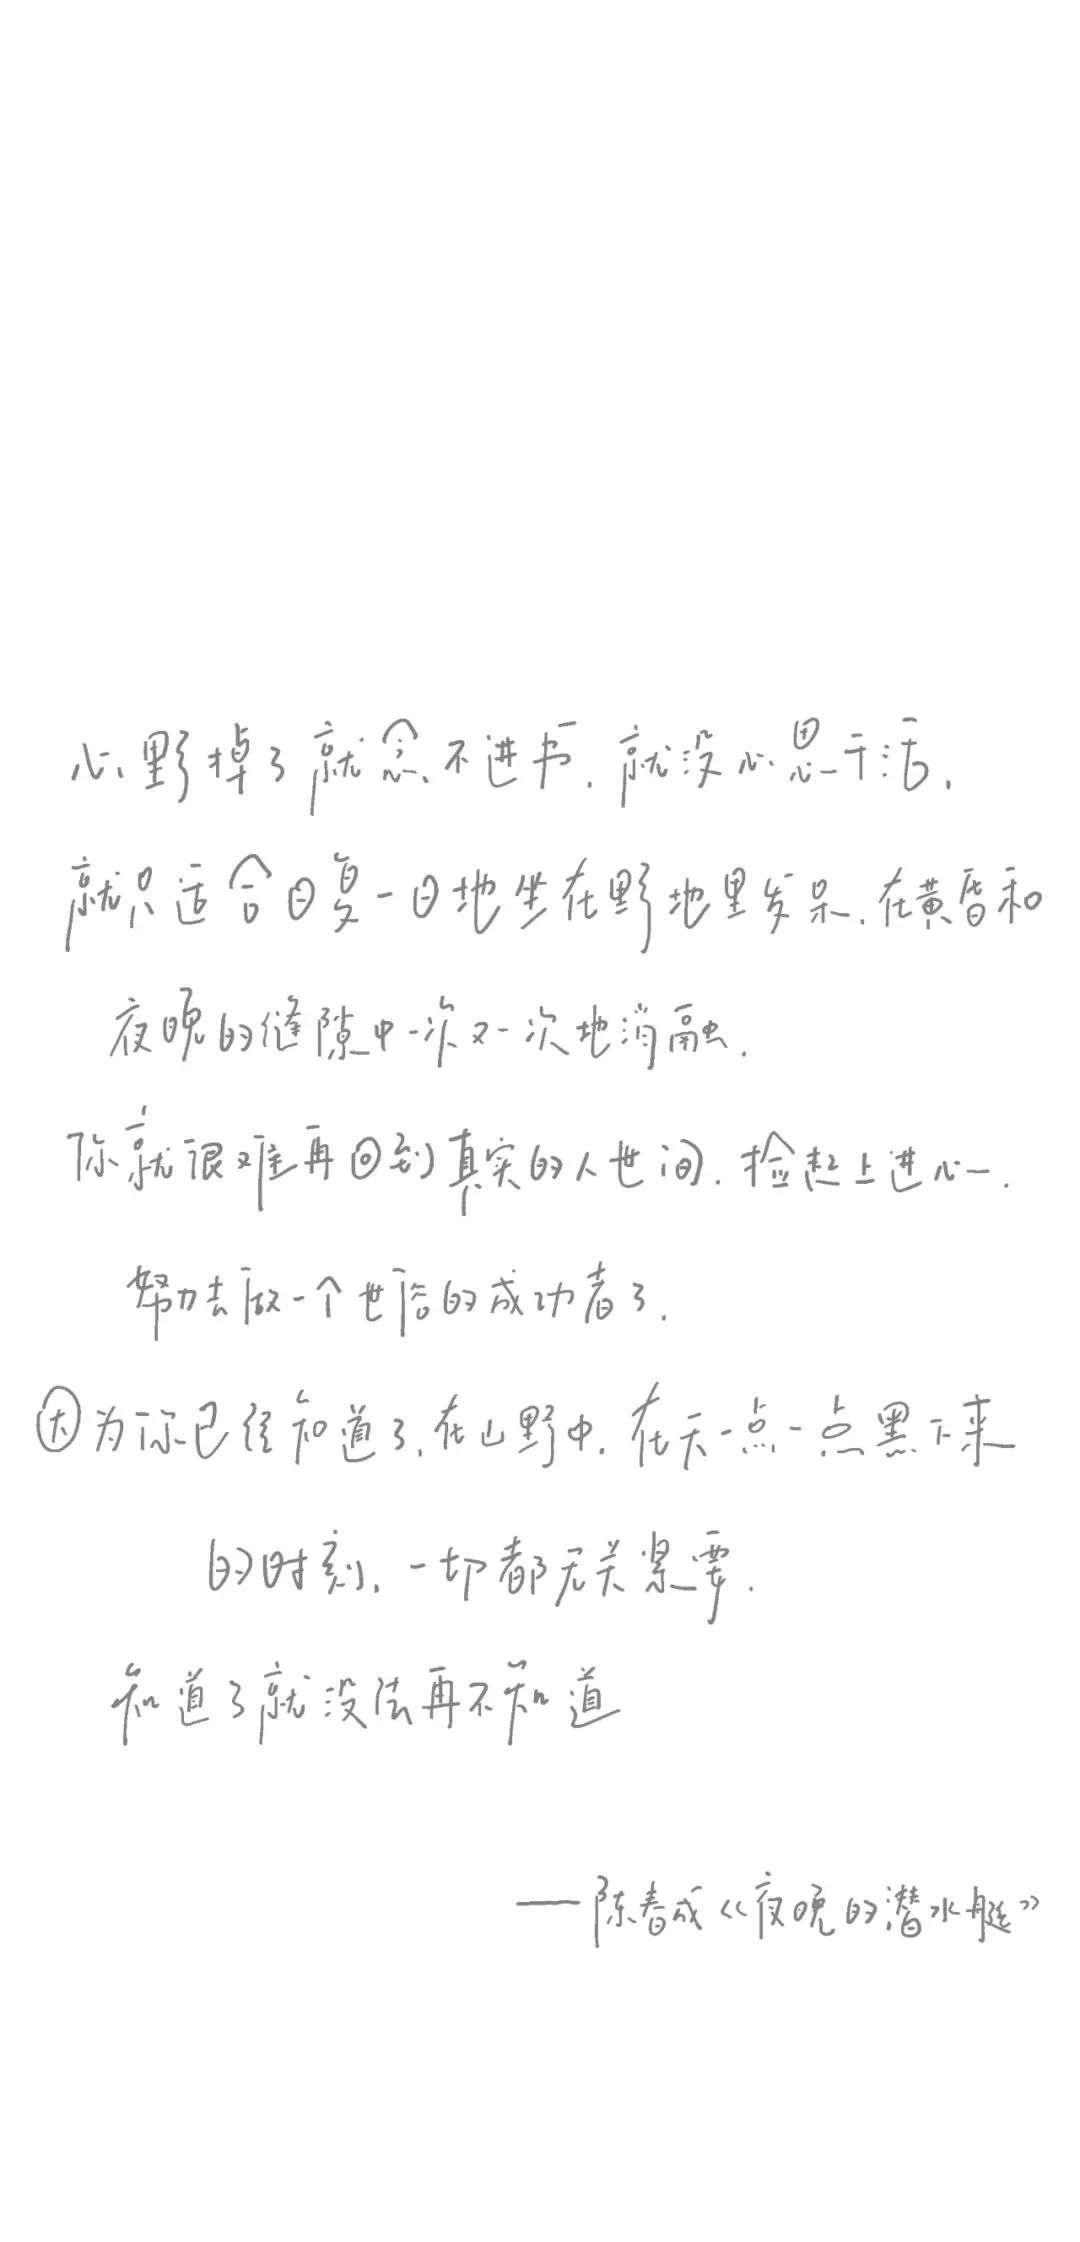 心野掉了就念不进书.就没心思干活.
就只适合日复一日地坐在野地里发呆.在黄昏和
夜晚的缝隙中一次又一次地消融.
你就很难再回到真实的人世间.捡起上进心.
努力去做一个世俗的成功者了.
因为你已经知道了.在山野中.在天一点一点黑下来
的时刻.一切都无关紧要.
知道了就没法再不知道
——陈春成《夜晚的潜水艇》